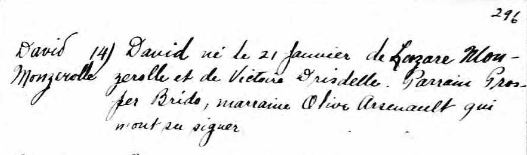 296
David 14) David né le 21 Janvier de Lazare Mon-
Monzerolle zerolle et de Victoire Drisdelle. Parrain Pros-
per Brido, marraine Olive Arsenault qui
n'ont su signer